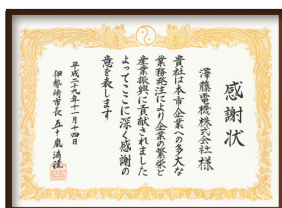 感謝状
澤藤電機株式会社様
貴社は本市企業への多大な
業務発注により企業の繁栄と
産業振興に貢献されました
よってここに深く感謝の
意を表します
平成二十九年十一月十四日
伊勢崎市長 五十嵐清隆